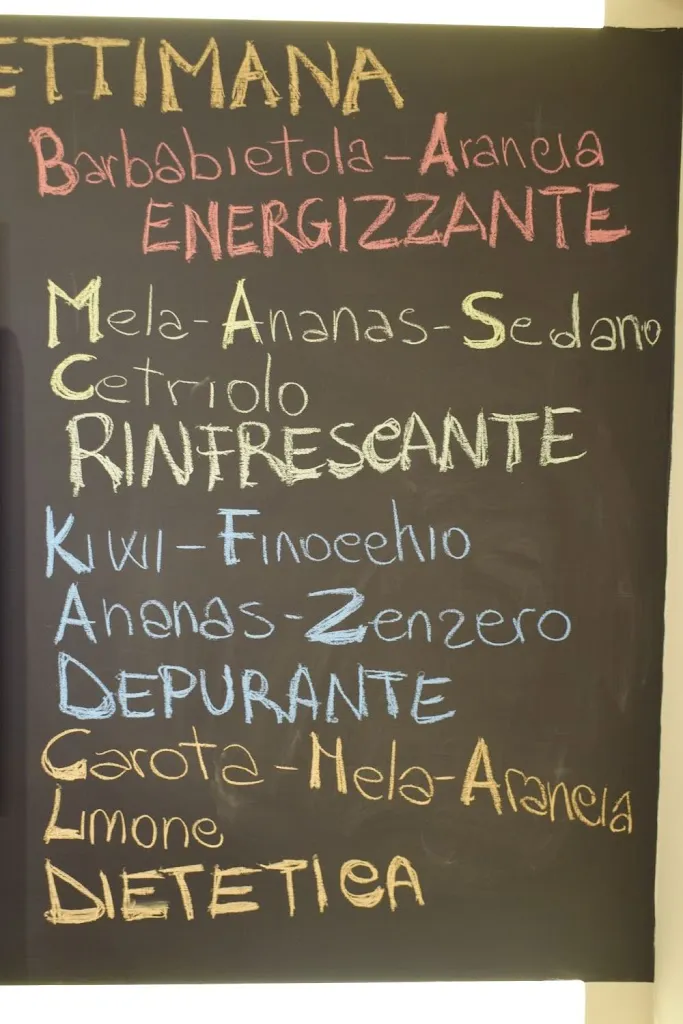 ETTIMANA
Barbabietola-Arancia
ENERGIZZANTE
Mela-Ananas-Sedano
Cetriolo
RINFRESCANTE
Kiwi-Finocchio
Ananas-Zenzero
DEPURANTE
Carota-Mela-Arancia
Limone
DIETETICA